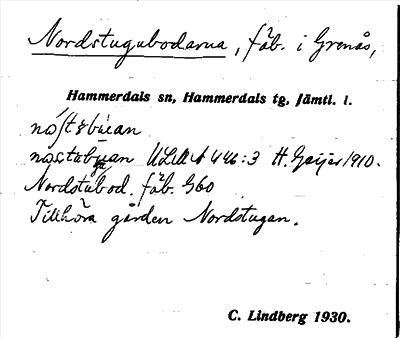 Nordstugubodarna, fäb. i Grenås,
Hammerdals sn, Hammerdals tg, Jämtl. l.
ULMA 446:3 H. Geijer 1910.
Nordstubod. fäb. G60
Tillhöra gården Nordstugan.
C. Lindberg 1930.